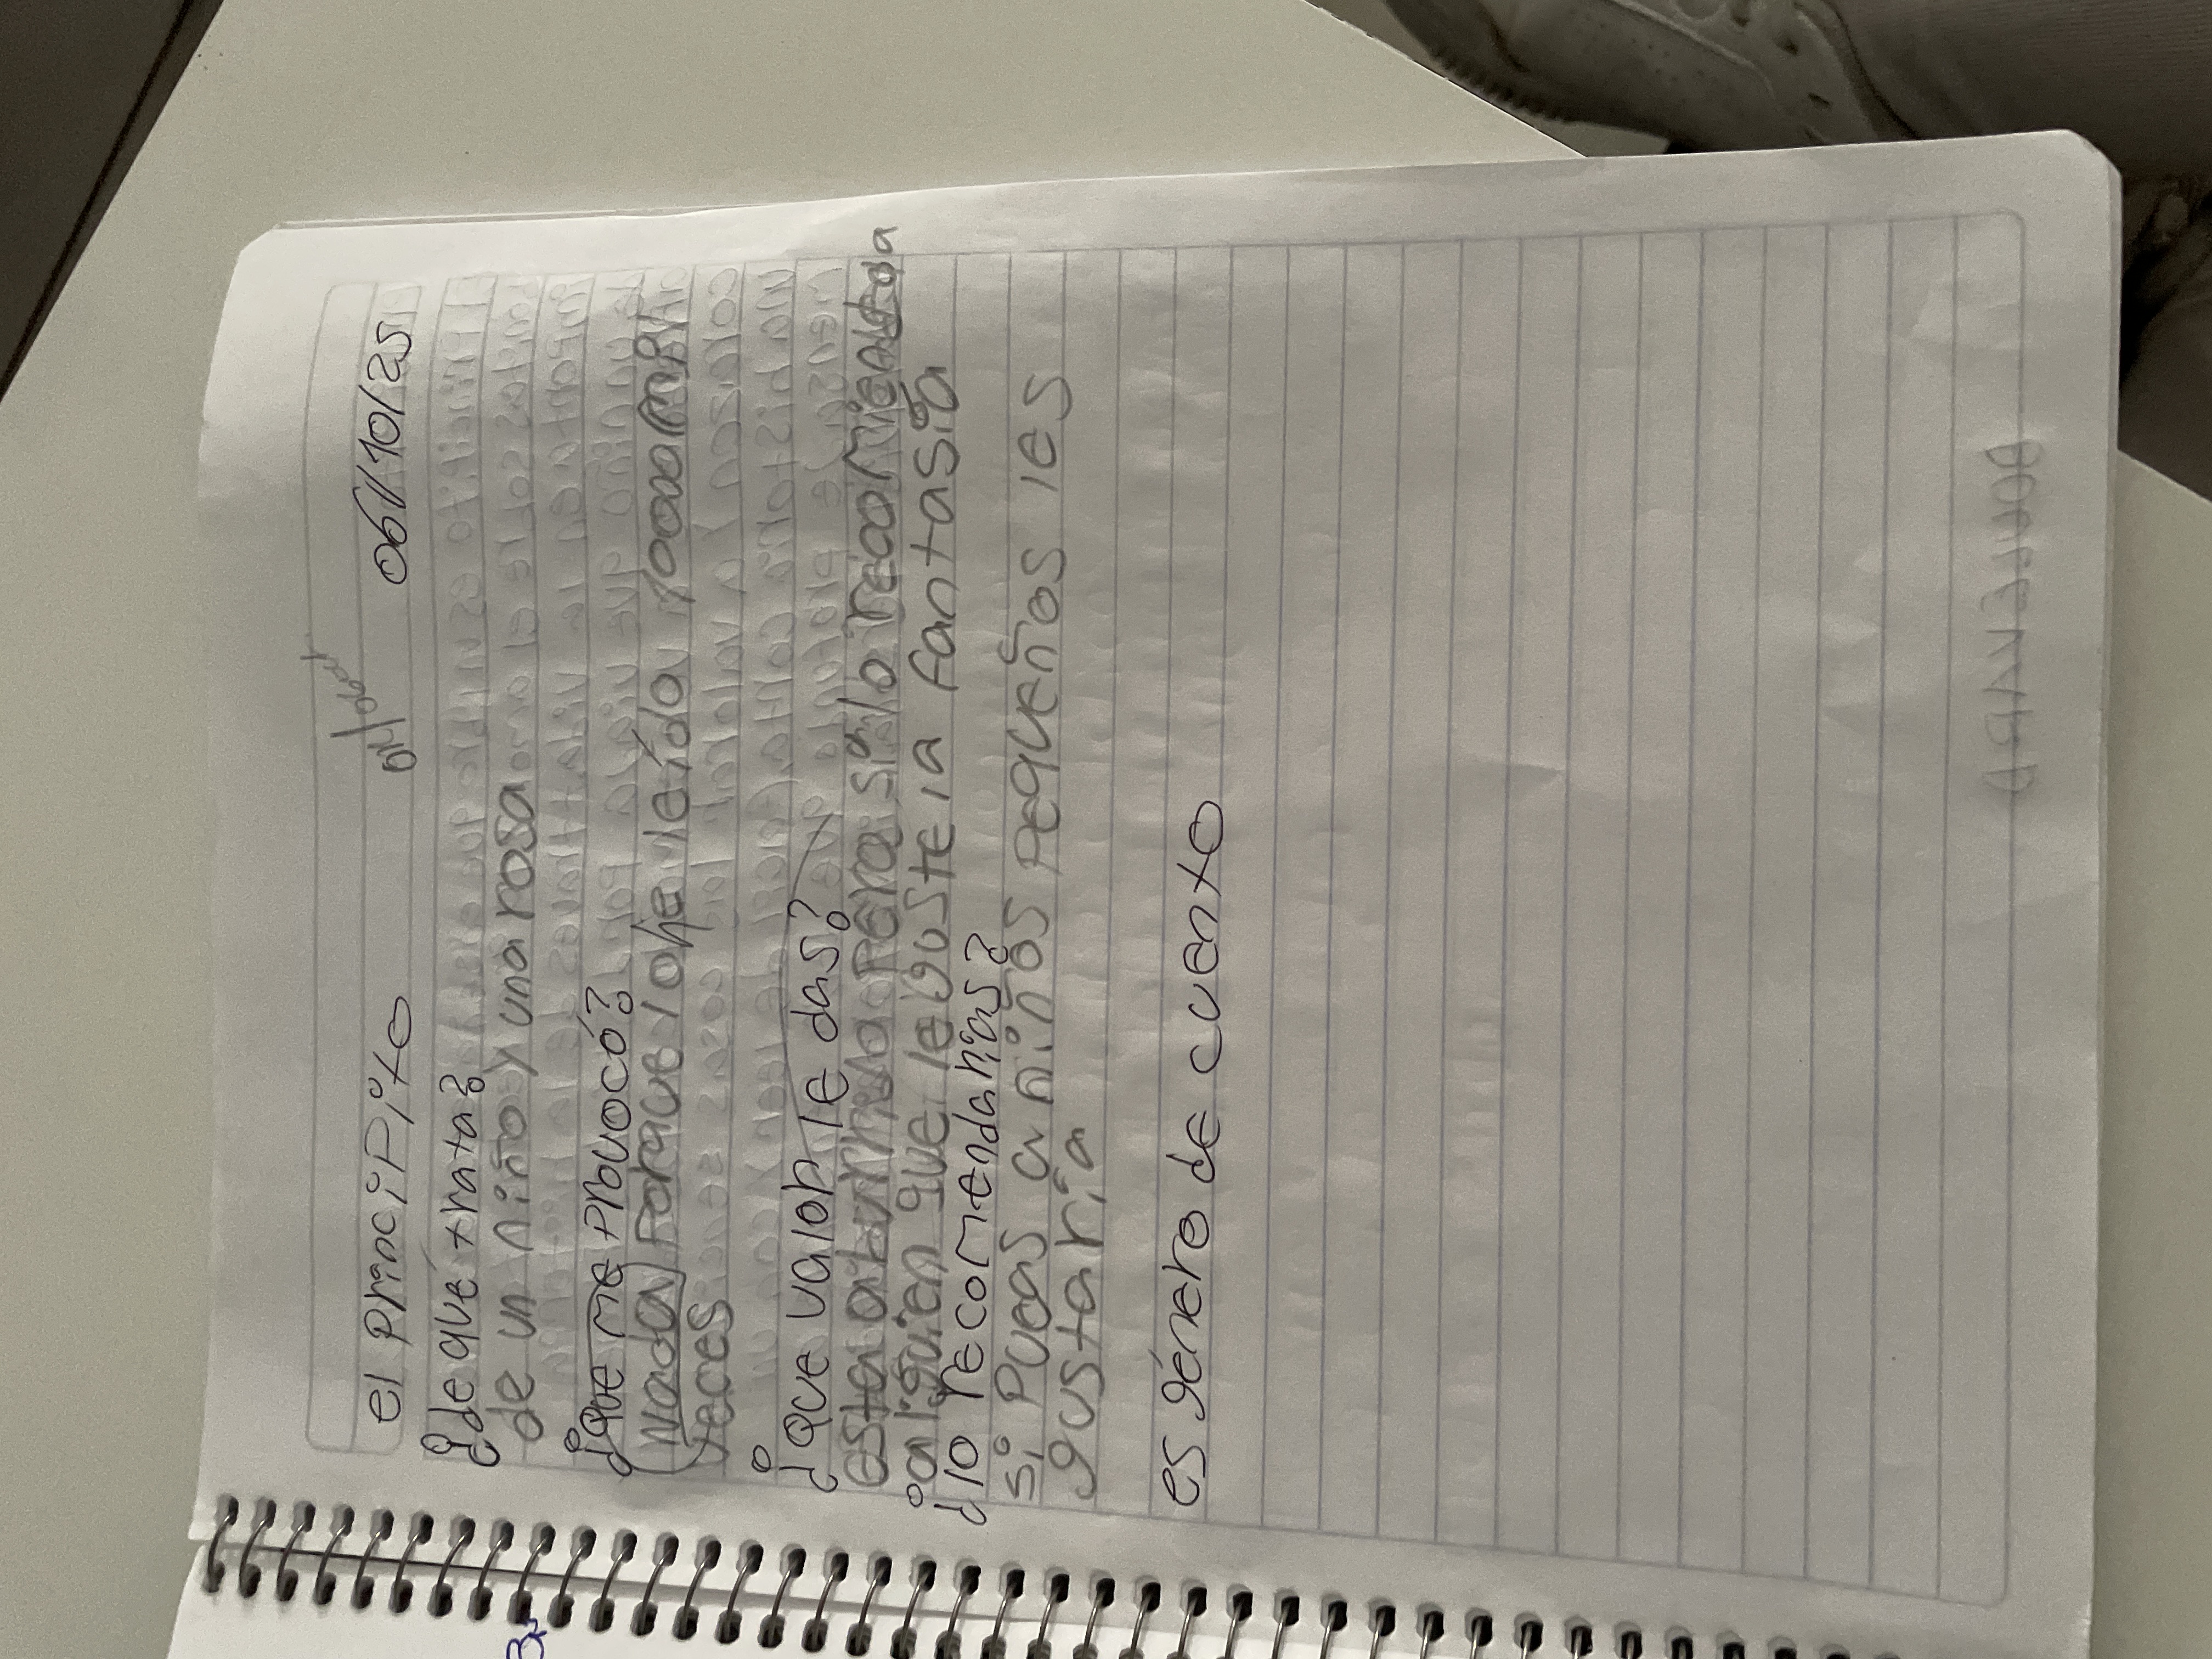 el PrinciPito 06/10/25
¿de qué trata?
de un niño y una rosa
¿que me Provocó?
Nada Porque lo he leído
veces
¿que valor le das?
esta aburrido Pero si lo recomiendo a
alguien que le guste la fantasía
¿lo recomendarías?
si Pues a niños Pequeños les
gustaría
es género de cuento